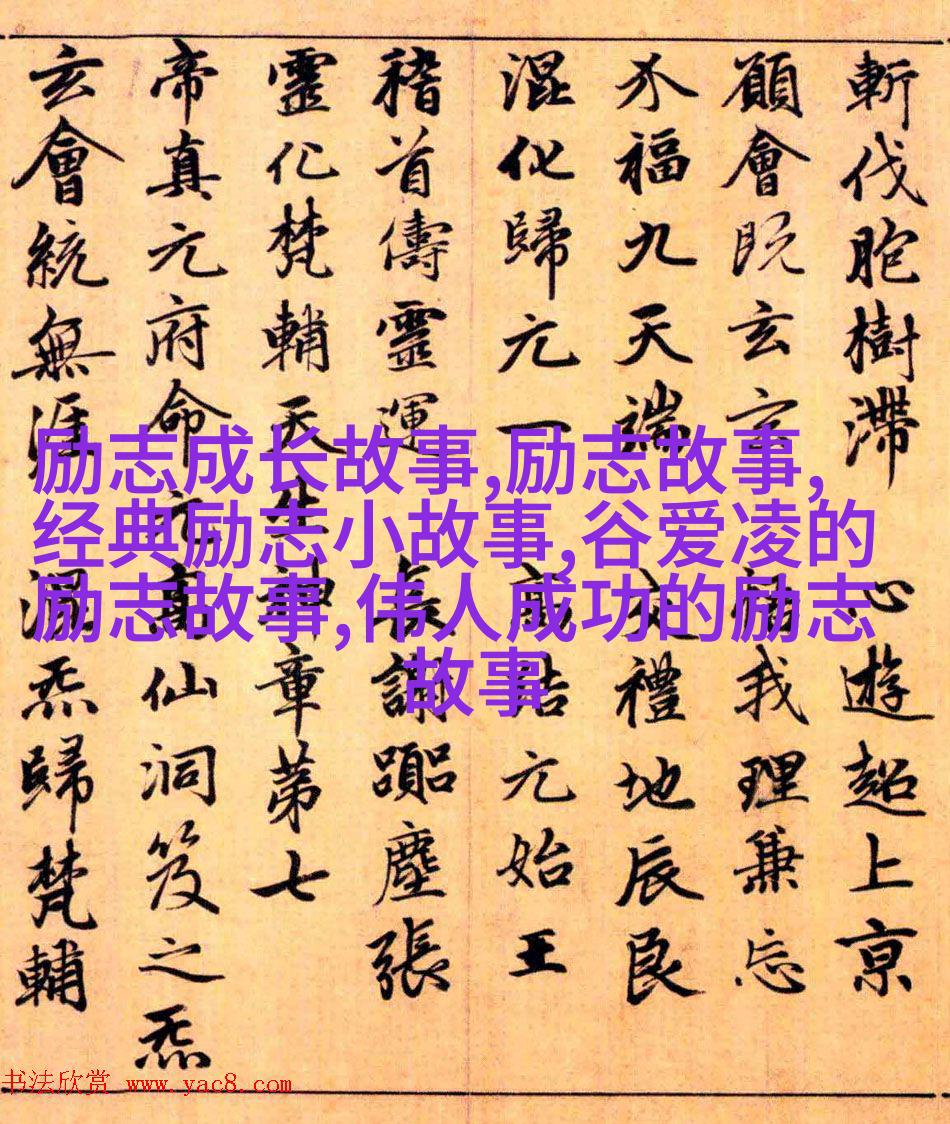 励志成长故事,励志故事,
经典励志小故事,谷爱凌的
励志故事,伟人成功的励志
故事
斬伐胞樹滯 心遊超上京
願會既玄玄 悟我理兼忘
福九天端 交禮地辰良
混化歸元一 高結元始王
稽首儔靈運 長謝塵張
靈化梵輔天生神章第七
帝真元府命元高仙洞笈之炁
玄會統無涯混炁歸梵輔
书法欣赏 www.yac8.com